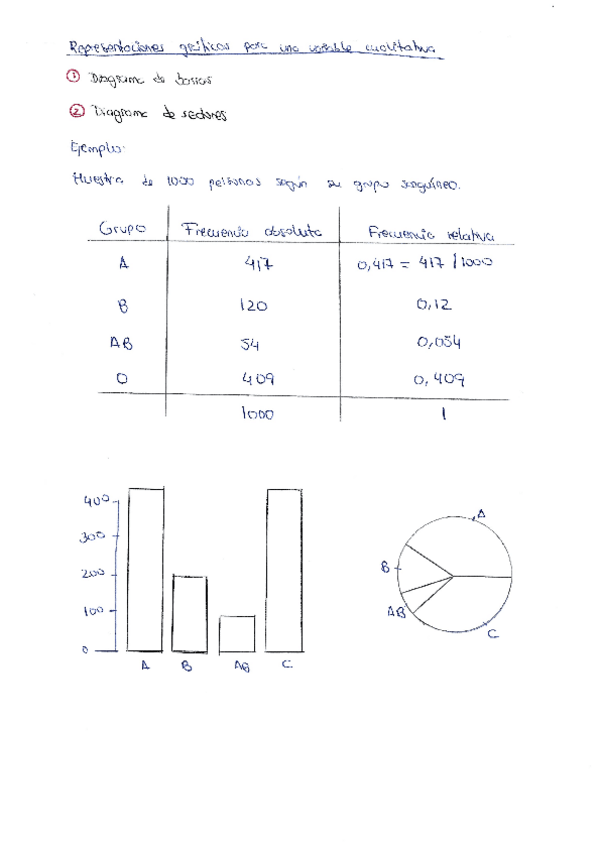 Representaciones gráficas para una variable cualitativa
① Diagrama de barras
② Diagrama de sectores
Ejemplo:
Muestra de 1000 personas según su grupo sanguíneo.
Grupo Frecuencia absoluta Frecuencia relativa
A 417 0,417 = 417 / 1000
B 120 0,12
AB 54 0,054
O 409 0,409
1000 1
400
300
200
100
0
A B AB C
A
B
AB
C